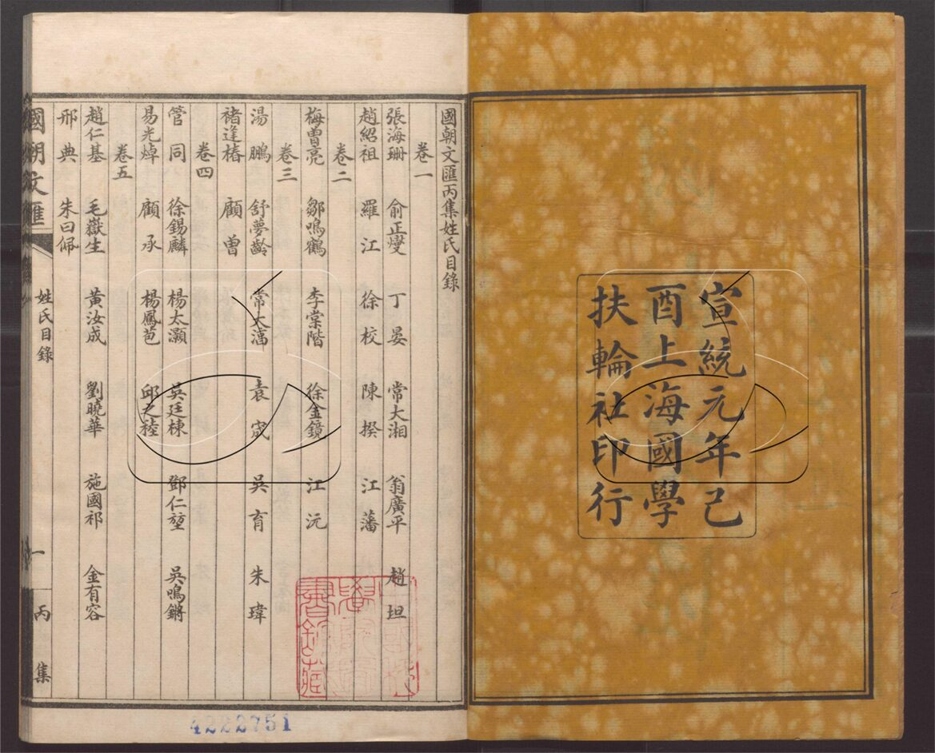 宣統元年己
酉上海國學
扶輪社印行
國朝文匯丙集姓氏目錄
卷一
張海珊 俞正燮 丁晏 常大湘 翁廣平 趙坦
趙紹祖 羅江 徐校 陳揆 江藩
卷二
梅曾亮 鄒鳴鶴 李棠階 徐金鏡 江沅
卷三
湯鵬 舒夢齡 常大淳 袁宬 吳育 朱瑋
褚逢椿 顧曾
卷四
管同 徐錫麟 楊太灝 吳廷棟 鄧仁堃 吳鳴鏘
易光焯 顧承 楊鳳苞 邱之稑
卷五
趙仁基 毛嶽生 黃汝成 劉曉華 施國祁 金有容
邢典 朱曰佩
國朝文匯 姓氏目錄 一 丙集
4222751